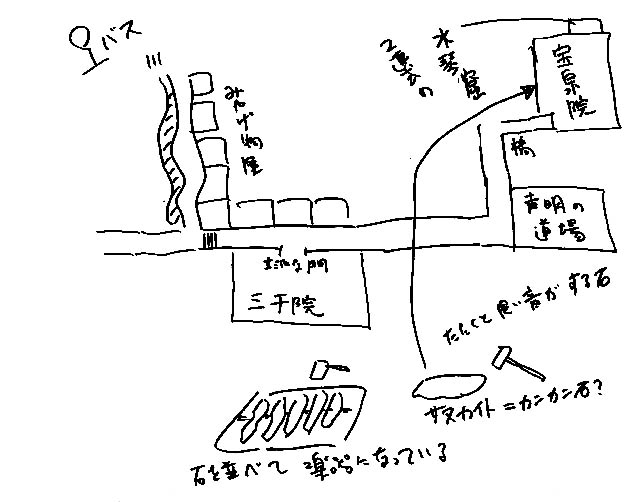 バス
みやげ物屋
2連式の
水琴窟
宝泉院
橋
声明の
道場
立派な門
三千院
たたくと良い音がする石
サヌカイト=カンカン石?
石を並べて 楽器になっている